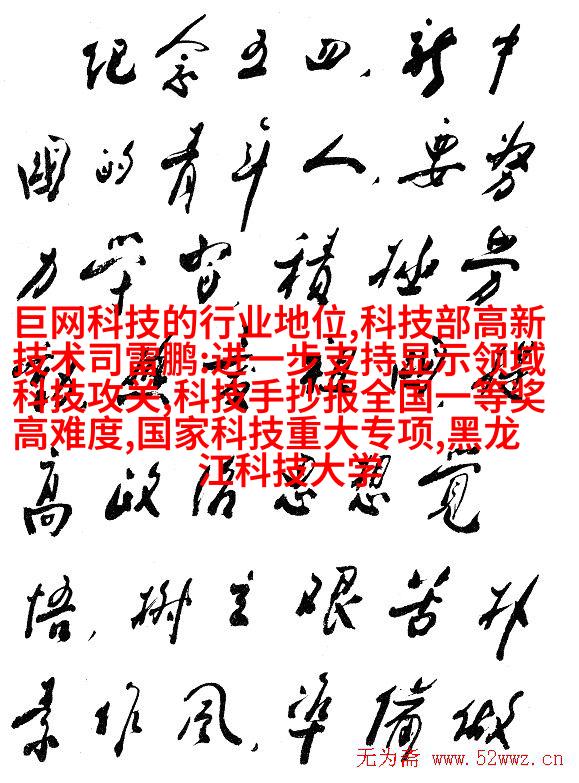 纪念五四，新中
國的青年人，要努
力学習，積極劳
巨网科技的行业地位,科技部高新
技术司雷鹏:进一步支持显示领域
科技攻关,科技手抄报全国一等奖
高难度,国家科技重大专项,黑龙
江科技大学
高政治思想觉
悟，樹立艰苦朴
素作风，準備做
无为斋 www.52wwz.cn